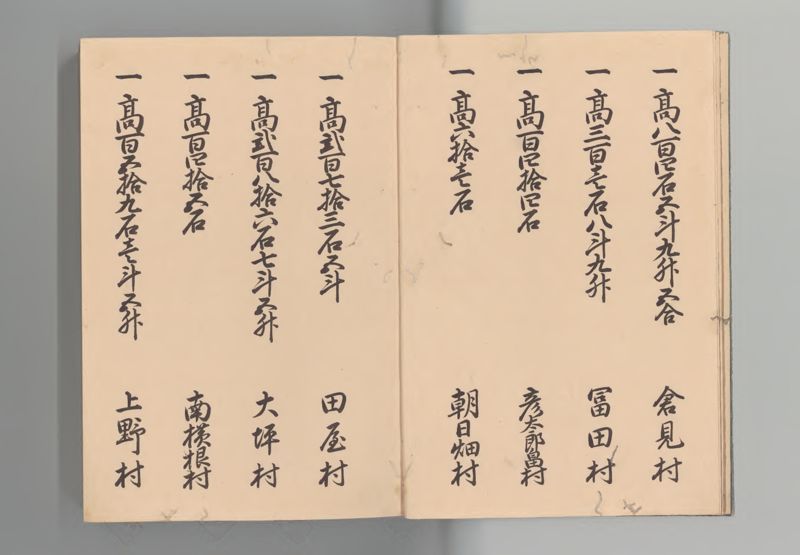 一高八百四石五斗九升五合 倉見村
一高三百壱石八斗九升 冨田村
一高百四拾四石 彦太郎畠村
一高六拾壱石 朝日畑村
一高弐百七拾三石五斗 田屋村
一高弐百八拾六石七斗五升 大坪村
一高百四拾五石 南横根村
一高百五拾九石壱斗五升 上野村